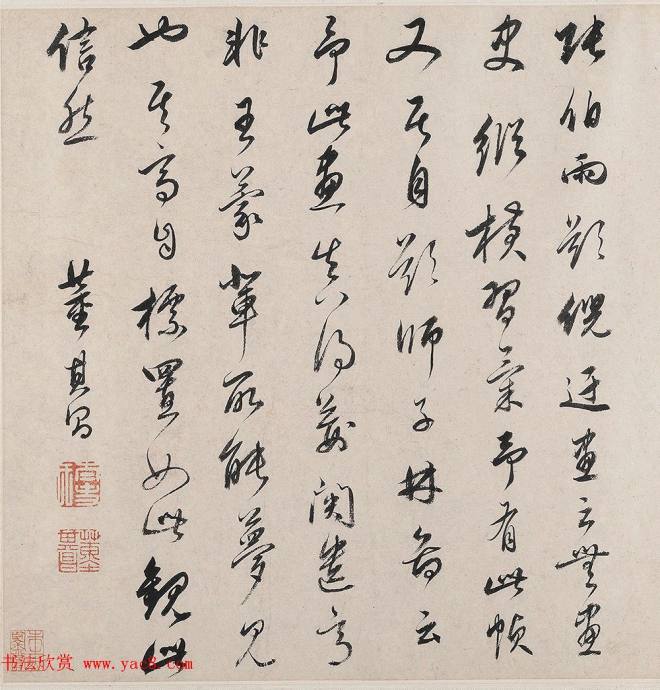 張伯雨題倪迂畫云無畫
史縱橫習氣予有此幀
又其自題師子林圖云
予此畫真得荊關遺意
非王蒙輩所能夢見
也其高自標置如此觀此
信然 董其昌
书法欣赏 www.yac8.com